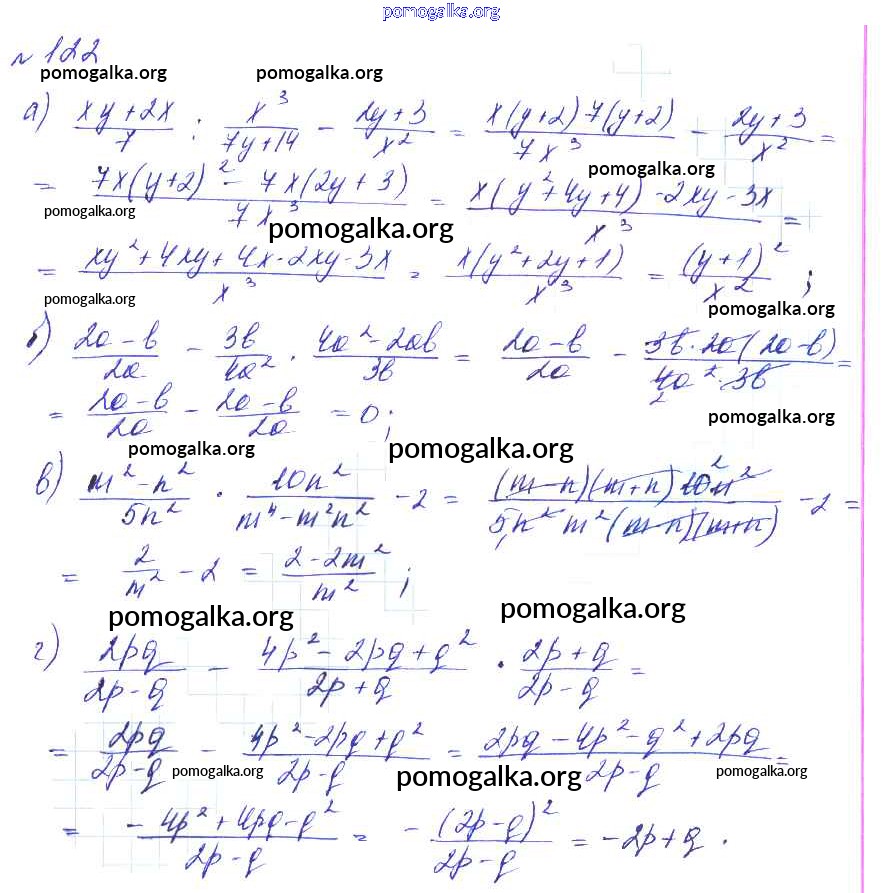 pomogalka.org
№ 122
pomogalka.org pomogalka.org
а) (xy+2x)/7 : x³/(7y+14) − (2y+3)/x² = (x(y+2)7(y+2))/(7x³) − (2y+3)/x² =
pomogalka.org
= (7x(y+2)² − 7x(2y+3))/(7x³) = (x(y²+4y+4)−2xy−3x)/x³ =
pomogalka.org pomogalka.org
= (xy²+4xy+4x-2xy-3x)/x³ = (x(y²+2y+1))/x³ = (y+1)²/x² ;
pomogalka.org pomogalka.org
б) (2a−b)/(2a) − 3b/(4a²) · (4a²−2ab)/(3b) = (2a−b)/(2a) − (3b·2a(2a−b))/(4a²·3b) =
2
= (2a−b)/(2a) − (2a−b)/(2a) = 0;
pomogalka.org
pomogalka.org pomogalka.org
в) (m²−n²)/(5n²) · 10n²/(m⁴−m²n²) −2 = ((m−n)(m+n)10n²)/(5n²m²(m−n)(m+n)) −2 =
2
= 2/m² −2 = (2−2m²)/m² ;
pomogalka.org pomogalka.org
г) 2pq/(2p−q) − (4p²−2pq+q²)/(2p+q) · (2p+q)/(2p−q) =
= 2pq/(2p−q) − (4p²−2pq+q²)/(2p−q) = (2pq−4p²−q²+2pq)/(2p−q) =
pomogalka.org pomogalka.org pomogalka.org
= (−4p²+4pq−q²)/(2p−q) = −(2p−q)²/(2p−q) = −2p+q .